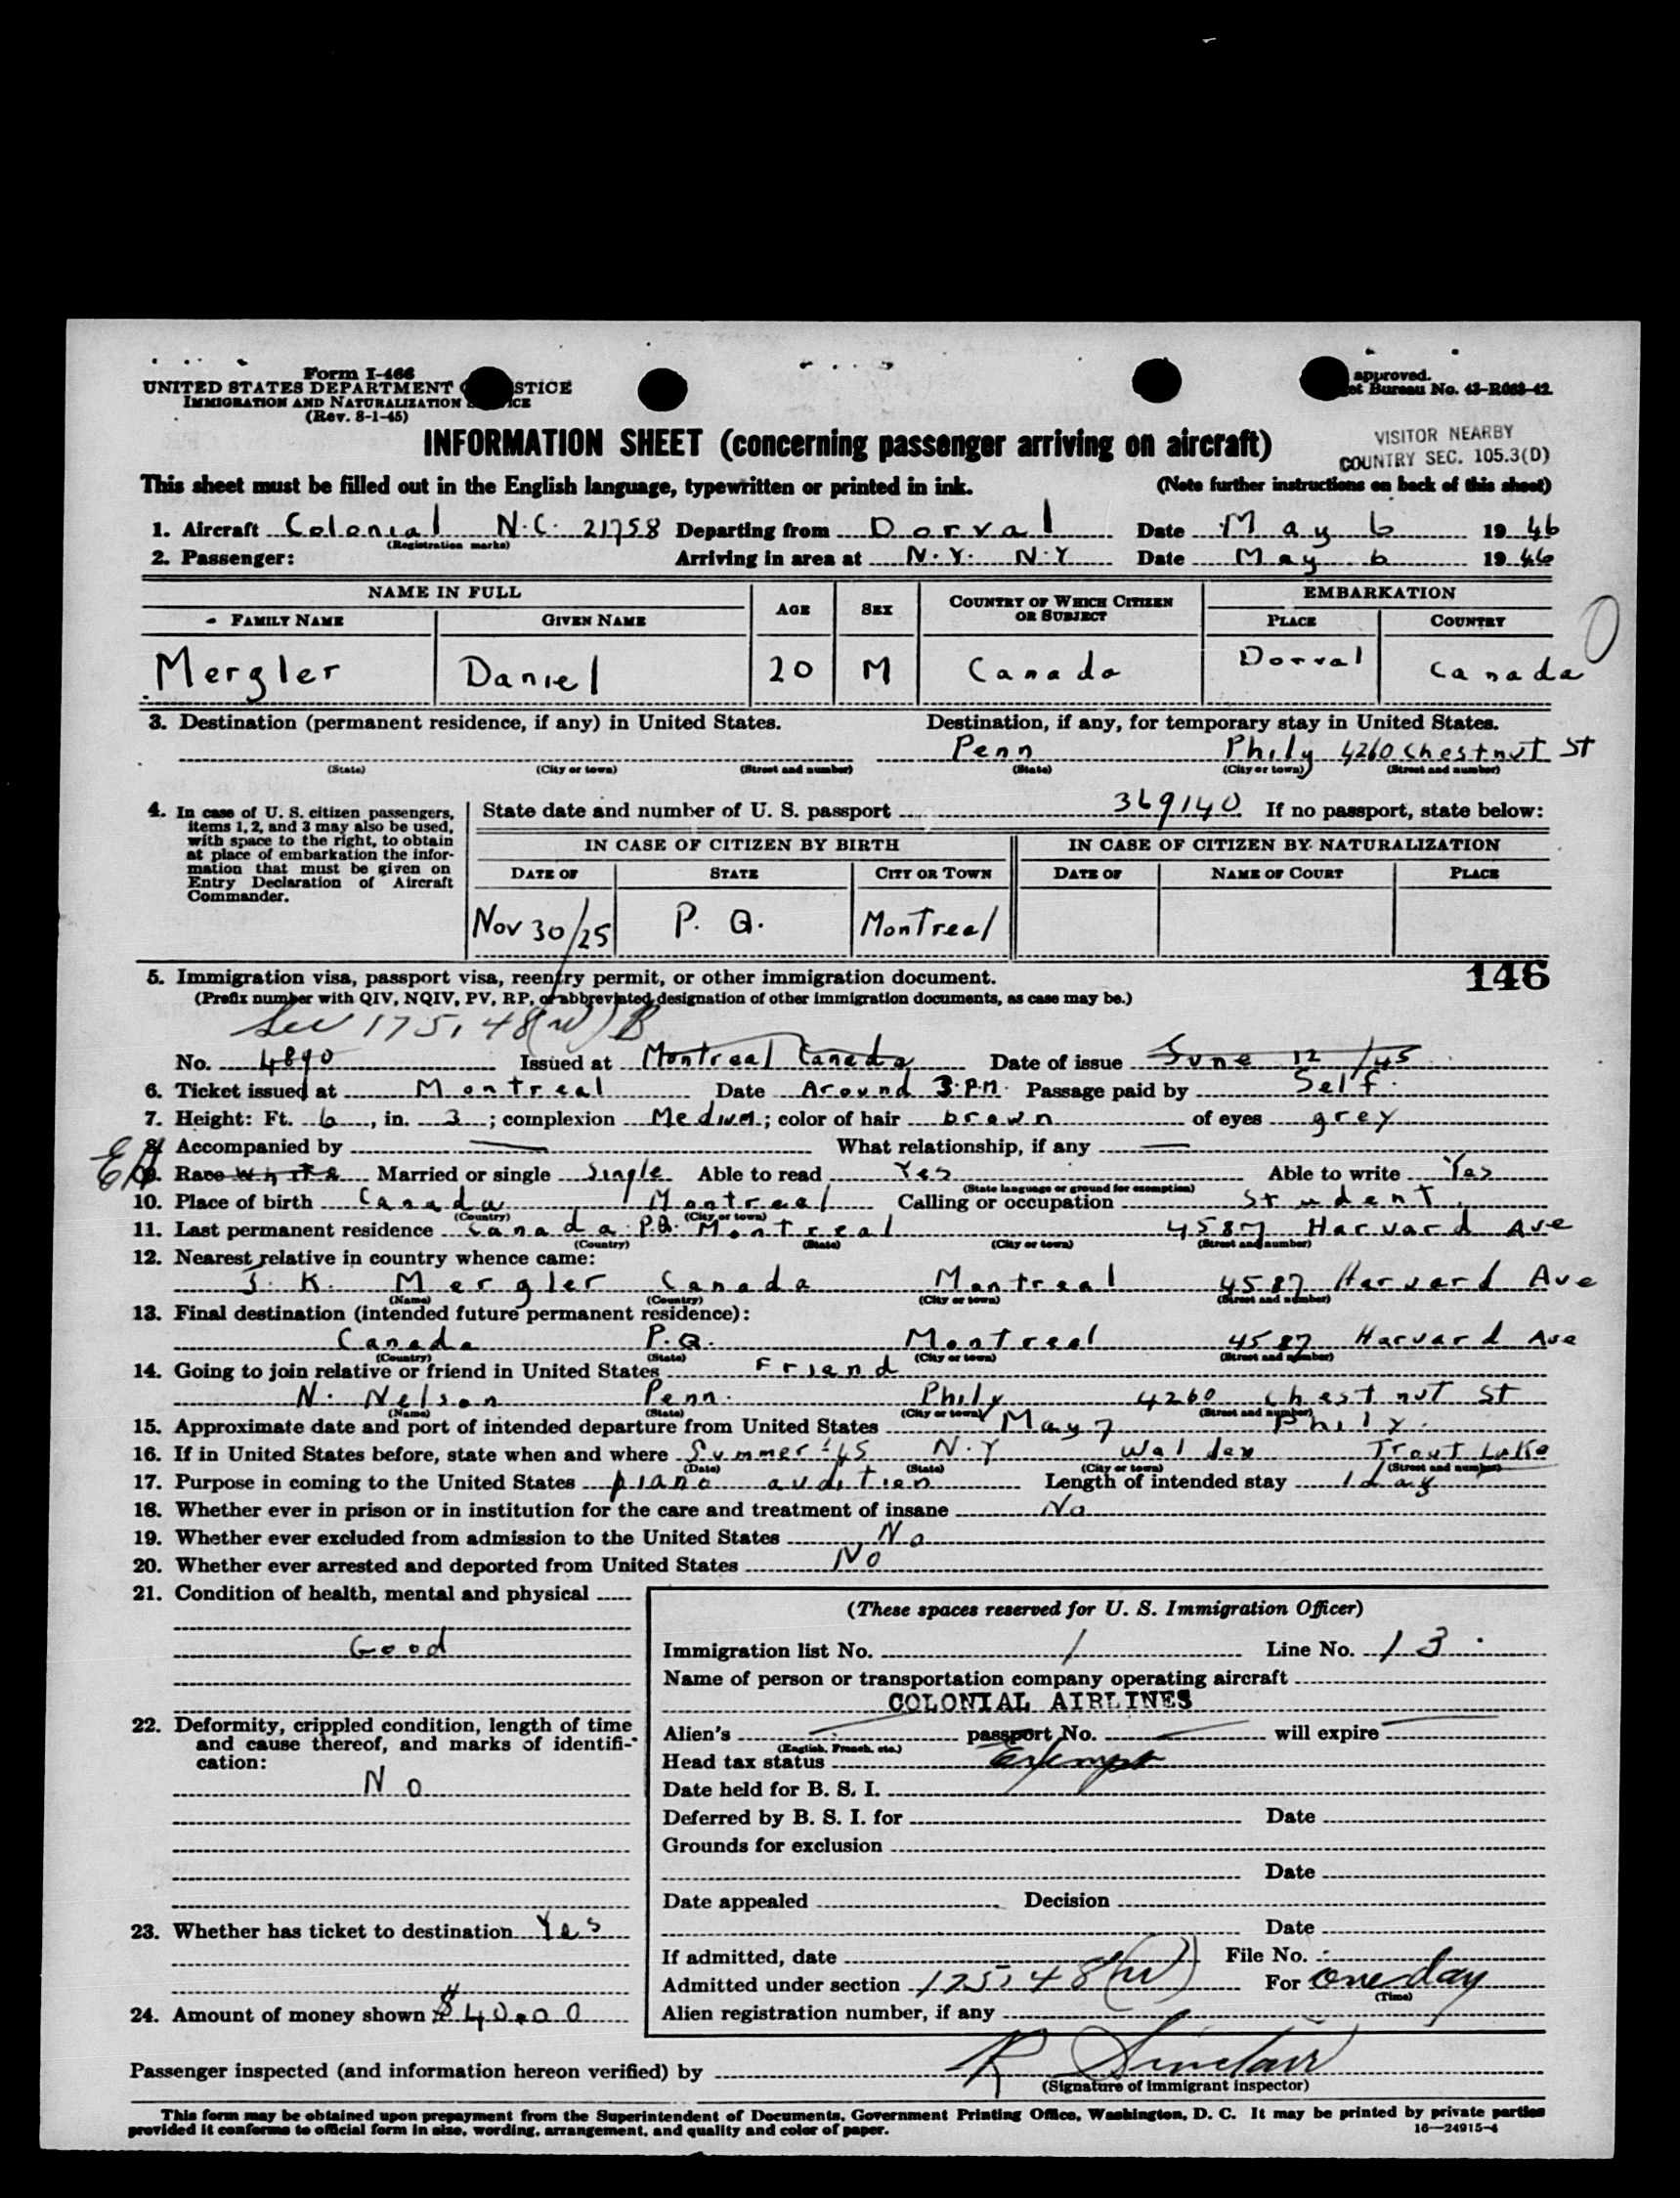 Form I-466
UNITED STATES DEPARTMENT STICE
IMMIGRATION AND NATURALIZATION ICE
(Rev. 8-1-45)
approved.
et Bureau No. 43-R063-42.
INFORMATION SHEET (concerning passenger arriving on aircraft)
VISITOR NEARBY
COUNTRY SEC. 105.3(D)
This sheet must be filled out in the English language, typewritten or printed in ink. (Note further instructions on back of this sheet)
1. Aircraft Colonial N.C. 21758 Departing from Dorval Date May 6 1946
(Registration marks)
2. Passenger: Arriving in area at N.Y. N.Y Date May 6 1946
NAME IN FULL AGE SEX COUNTRY OF WHICH CITIZEN OR SUBJECT EMBARKATION
FAMILY NAME GIVEN NAME PLACE COUNTRY
Mergler Daniel 20 M Canada Dorval Canada
3. Destination (permanent residence, if any) in United States. Destination, if any, for temporary stay in United States.
Penn Phily 4260 Chestnut St
(State) (City or town) (Street and number) (State) (City or town) (Street and number)
4. In case of U. S. citizen passengers, items 1, 2, and 3 may also be used, with space to the right, to obtain at place of embarkation the information that must be given on Entry Declaration of Aircraft Commander.
State date and number of U. S. passport 369140 If no passport, state below:
IN CASE OF CITIZEN BY BIRTH IN CASE OF CITIZEN BY NATURALIZATION
DATE OF STATE CITY OR TOWN DATE OF NAME OF COURT PLACE
Nov 30/25 P. Q. Montreal
5. Immigration visa, passport visa, reentry permit, or other immigration document. 146
(Prefix number with QIV, NQIV, PV, RP, or abbreviated designation of other immigration documents, as case may be.)
Sec 175.48(w) B
No. 4890 Issued at Montreal Canada Date of issue June 12/45
6. Ticket issued at Montreal Date Around 3 P.M. Passage paid by Self.
7. Height: Ft. 6, in. 3; complexion Medium; color of hair brown of eyes grey
8. Accompanied by What relationship, if any
EH
9. Race White Married or single Single Able to read Yes Able to write Yes
(State language or ground for exemption)
10. Place of birth Canada Montreal Calling or occupation Student
(Country) (City or town)
11. Last permanent residence Canada P.Q. Montreal 4587 Harvard Ave
(Country) (State) (City or town) (Street and number)
12. Nearest relative in country whence came:
J. K. Mergler Canada Montreal 4587 Harvard Ave
(Name) (Country) (City or town) (Street and number)
13. Final destination (intended future permanent residence):
Canada P.Q. Montreal 4587 Harvard Ave
(Country) (State) (City or town) (Street and number)
14. Going to join relative or friend in United States Friend
N. Nelson Penn. Phily 4260 Chestnut St
(Name) (State) (City or town) (Street and number)
15. Approximate date and port of intended departure from United States May 7 Phily.
16. If in United States before, state when and where Summer '45 N.Y Walden Trout Lake
(Date) (State) (City or town) (Street and number)
17. Purpose in coming to the United States piano audition Length of intended stay 1 day
18. Whether ever in prison or in institution for the care and treatment of insane No
19. Whether ever excluded from admission to the United States No
20. Whether ever arrested and deported from United States No
21. Condition of health, mental and physical
Good
22. Deformity, crippled condition, length of time and cause thereof, and marks of identification:
No
23. Whether has ticket to destination Yes
24. Amount of money shown $40.00
(These spaces reserved for U. S. Immigration Officer)
Immigration list No. 1 Line No. 13
Name of person or transportation company operating aircraft
COLONIAL AIRLINES
Alien's passport No. will expire
(English, French, etc.)
Head tax status Exempt
Date held for B. S. I.
Deferred by B. S. I. for Date
Grounds for exclusion
Date
Date appealed Decision
Date
If admitted, date File No.
Admitted under section 125.48(w) For one day
(Time)
Alien registration number, if any
Passenger inspected (and information hereon verified) by R Sinclair
(Signature of immigrant inspector)
This form may be obtained upon prepayment from the Superintendent of Documents, Government Printing Office, Washington, D. C. It may be printed by private parties
provided it conforms to official form in size, wording, arrangement, and quality and color of paper. 16—24915-4